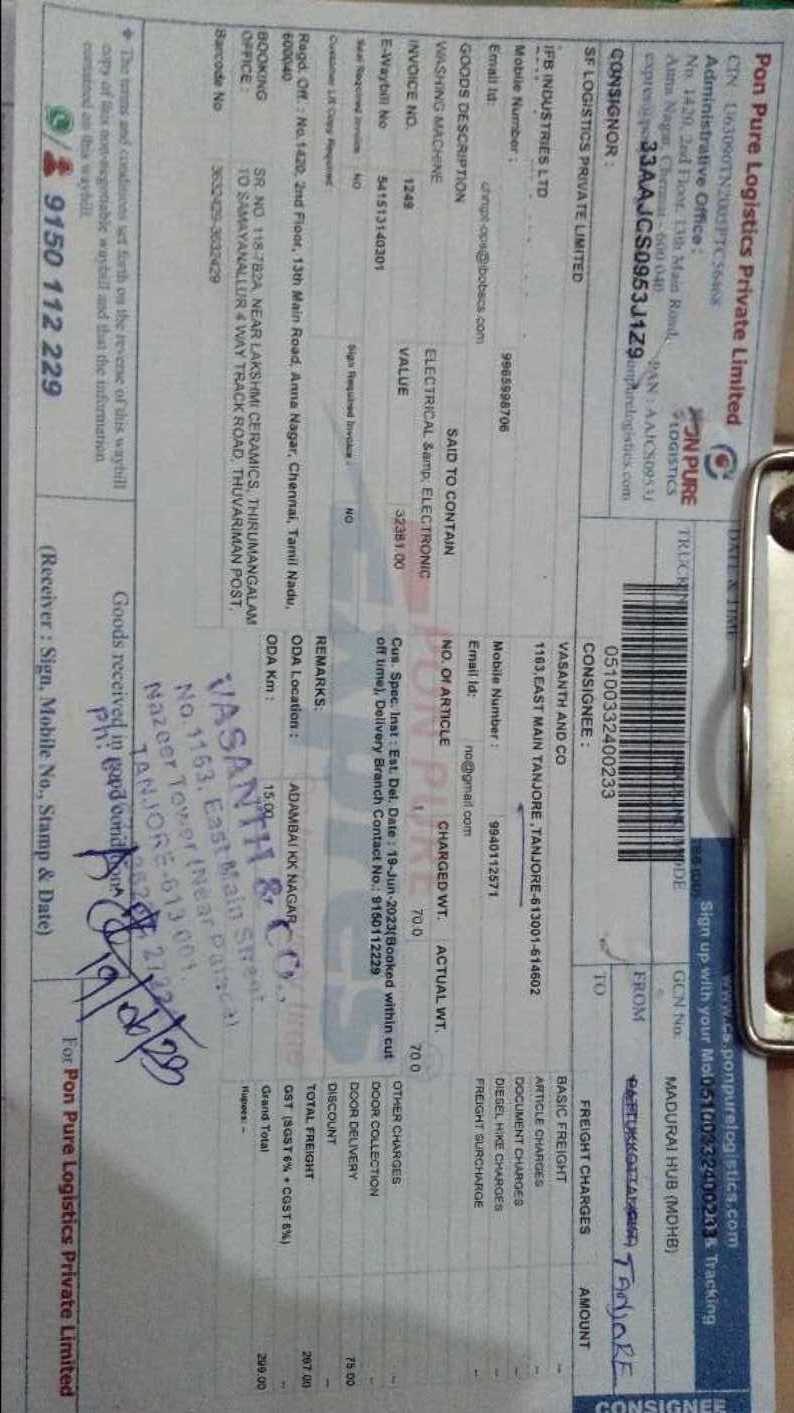 Pon Pure Logistics Private Limited
CIN : U63090TN2005PTC56468
Administrative Office :
No. 1420, 2nd Floor, 13th Main Road,
Anna Nagar, Chennai - 600 040
PAN : AAJCS0953J
33AAJCS0953J1Z9
PON PURE
LOGISTICS
DATE & TIME
05100332400233
www.cs.ponpurelogistics.com
Sign up with your
05100332400233
& Tracking
GCN No.
MADURAI HUB (MDHB)
FROM
TO
TANJORE
CONSIGNEE
CONSIGNOR :
SF LOGISTICS PRIVATE LIMITED
IFB INDUSTRIES LTD
Mobile Number :
9965998706
Email Id:
CONSIGNEE :
VASANTH AND CO
1163,EAST MAIN TANJORE ,TANJORE-613001-614602
Mobile Number :
9940112571
Email Id:
no@gmail.com
FREIGHT CHARGES
AMOUNT
BASIC FREIGHT --
ARTICLE CHARGES --
DOCUMENT CHARGES --
DIESEL HIKE CHARGES --
FREIGHT SURCHARGE --
OTHER CHARGES --
DOOR COLLECTION --
DOOR DELIVERY 75.00
DISCOUNT --
TOTAL FREIGHT 267.00
GST (SGST 6% + CGST 6%) --
Grand Total 299.00
Rupees: --
GOODS DESCRIPTION
SAID TO CONTAIN
NO. Of ARTICLE
CHARGED WT.
ACTUAL WT.
WASHING MACHINE
ELECTRICAL &amp; ELECTRONIC
1
70.0
70.0
INVOICE NO. 1249
VALUE 32381.00
E-Waybill No 541513140301
Cus. Spec. Inst : Est. Del. Date : 19-Jun-2023(Booked within cut
off time), Delivery Branch Contact No.: 9150112229
Seal Required Invoice NO
Sign Required Invoice : NO
Customer LR Copy Required
REMARKS:
Regd. Off. : No.1420, 2nd Floor, 13th Main Road, Anna Nagar, Chennai, Tamil Nadu,
600040
ODA Location : ADAMBAI KK NAGAR
ODA Km : 15.00
BOOKING
OFFICE :
SR. NO. 118-7B2A, NEAR LAKSHMI CERAMICS, THIRUMANGALAM
TO SAMAYANALLUR 4 WAY TRACK ROAD, THUVARIMAN POST,
Barcode No 3632429-3632429
VASANTH & Co.,
No. 1163, East Main Street,
Nazeer Tower (Near Palace)
TANJORE-613 001
Ph:
Goods received in good condition
19/06/23
The terms and conditions set forth on the reverse of this waybill
copy of this non-negotiable waybill and that the information
contained on this waybill.
9150 112 229
(Receiver : Sign, Mobile No., Stamp & Date)
For Pon Pure Logistics Private Limited